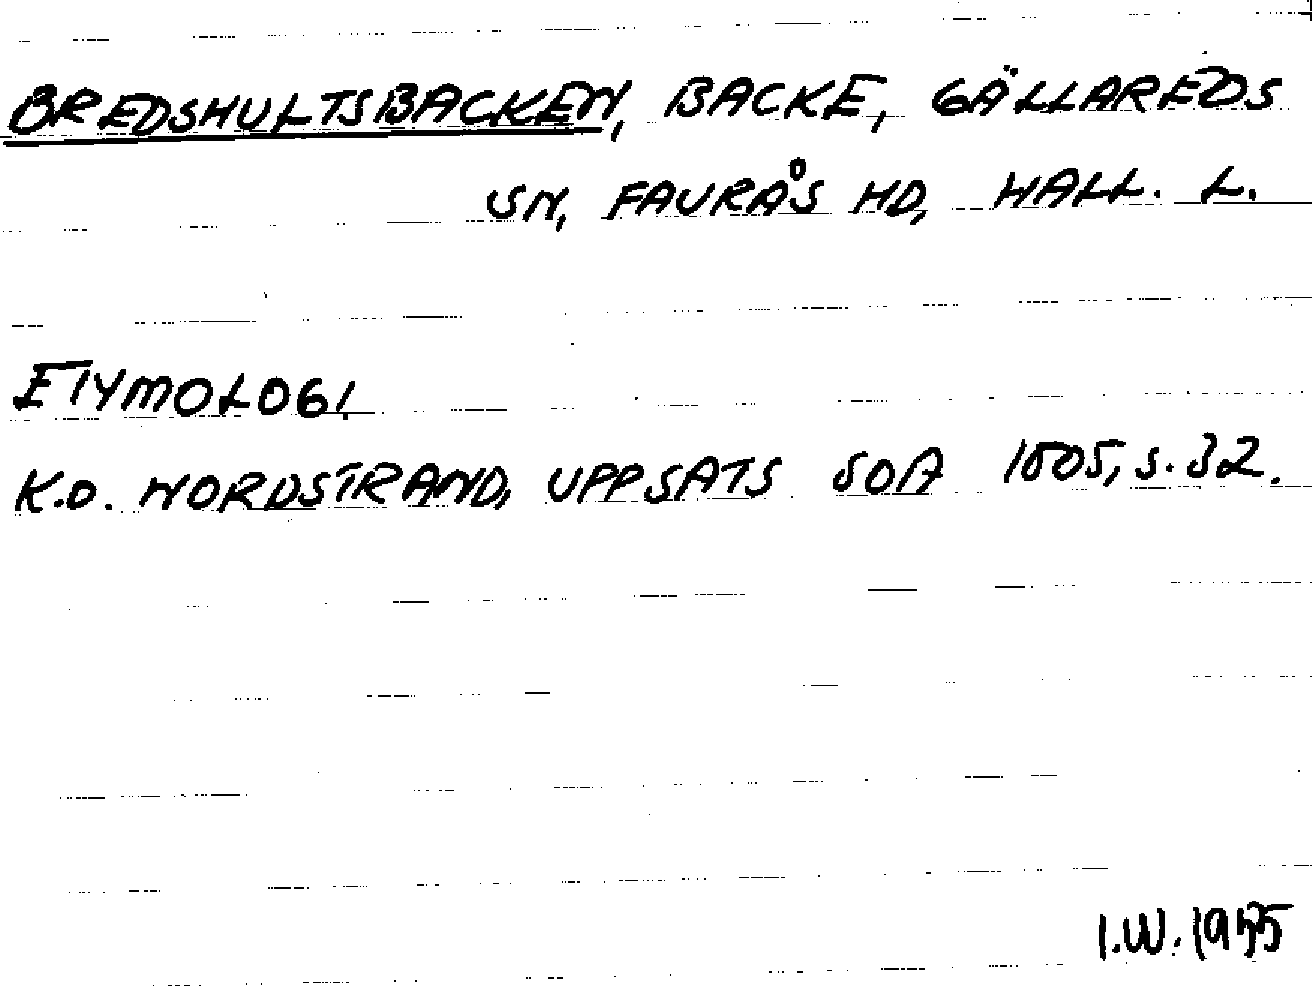 BREDSHULTSBACKEN, BACKE, GÄLLAREDS
SN, FAURÅS HD, HALL. L.
ETYMOLOGI.
K.O. NORDSTRAND, UPPSATS SOA 1505, S. 32.
I.W. 1955